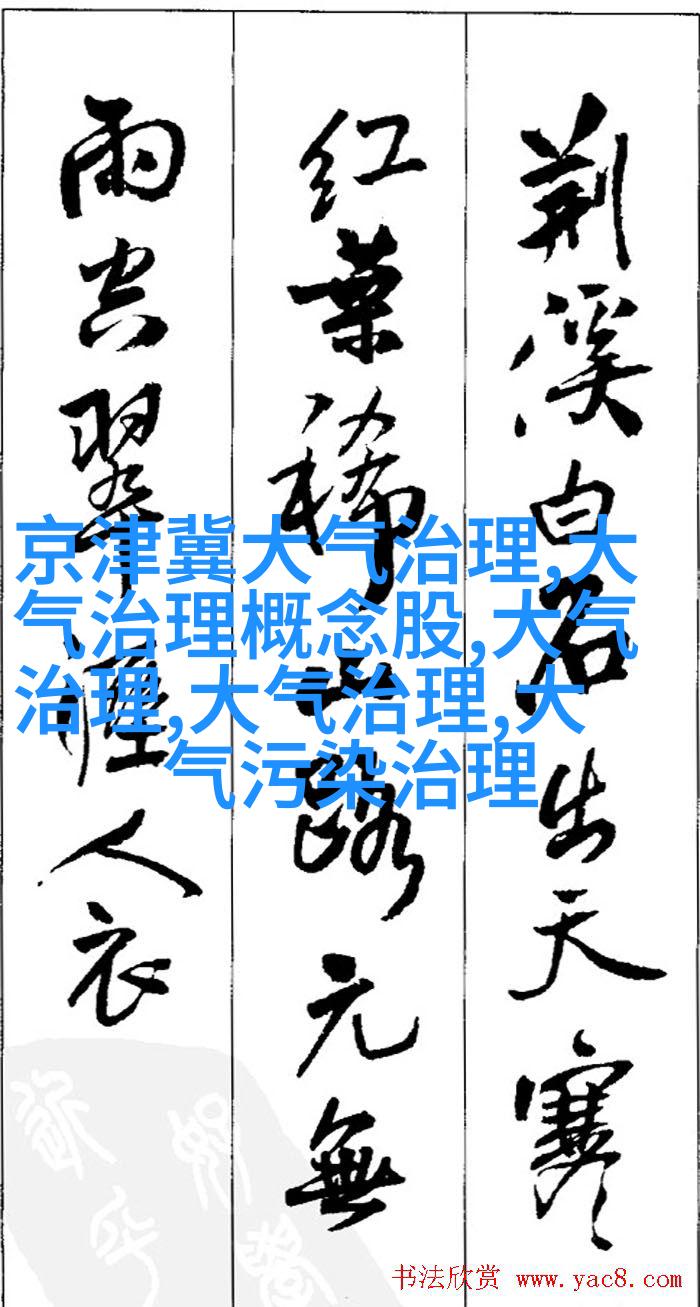 荆溪白石出天寒
红葉稀山路元無
雨空翠溼人衣
京津冀大气治理,大
气治理概念股,大气
治理,大气治理,大
气污染治理
书法欣赏 www.yac8.com